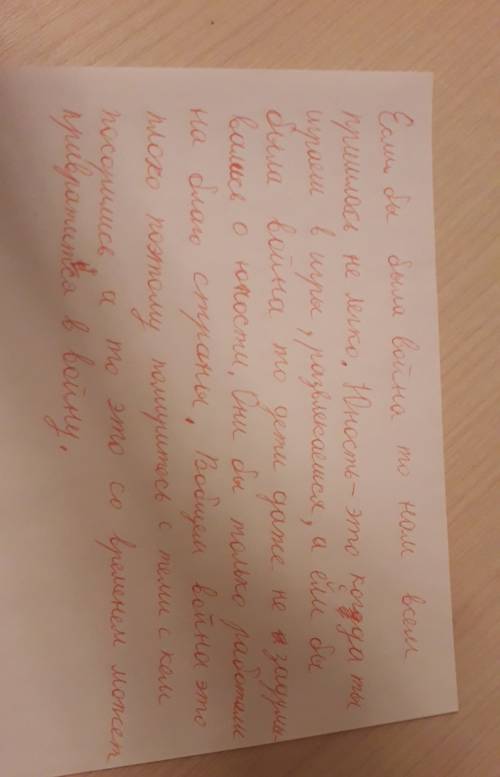 Если бы была война то нам всем
пришлось не легко. Юность - это когда ты
играеш в игры, развлекаешся, а если бы
была война то дети даже не задумы
вались о юности. Они бы только работали
на благо страны. Вобщем война это
плохо поэтому помиритесь с теми с кем
посорились а то это со временем может
привратится в войну.